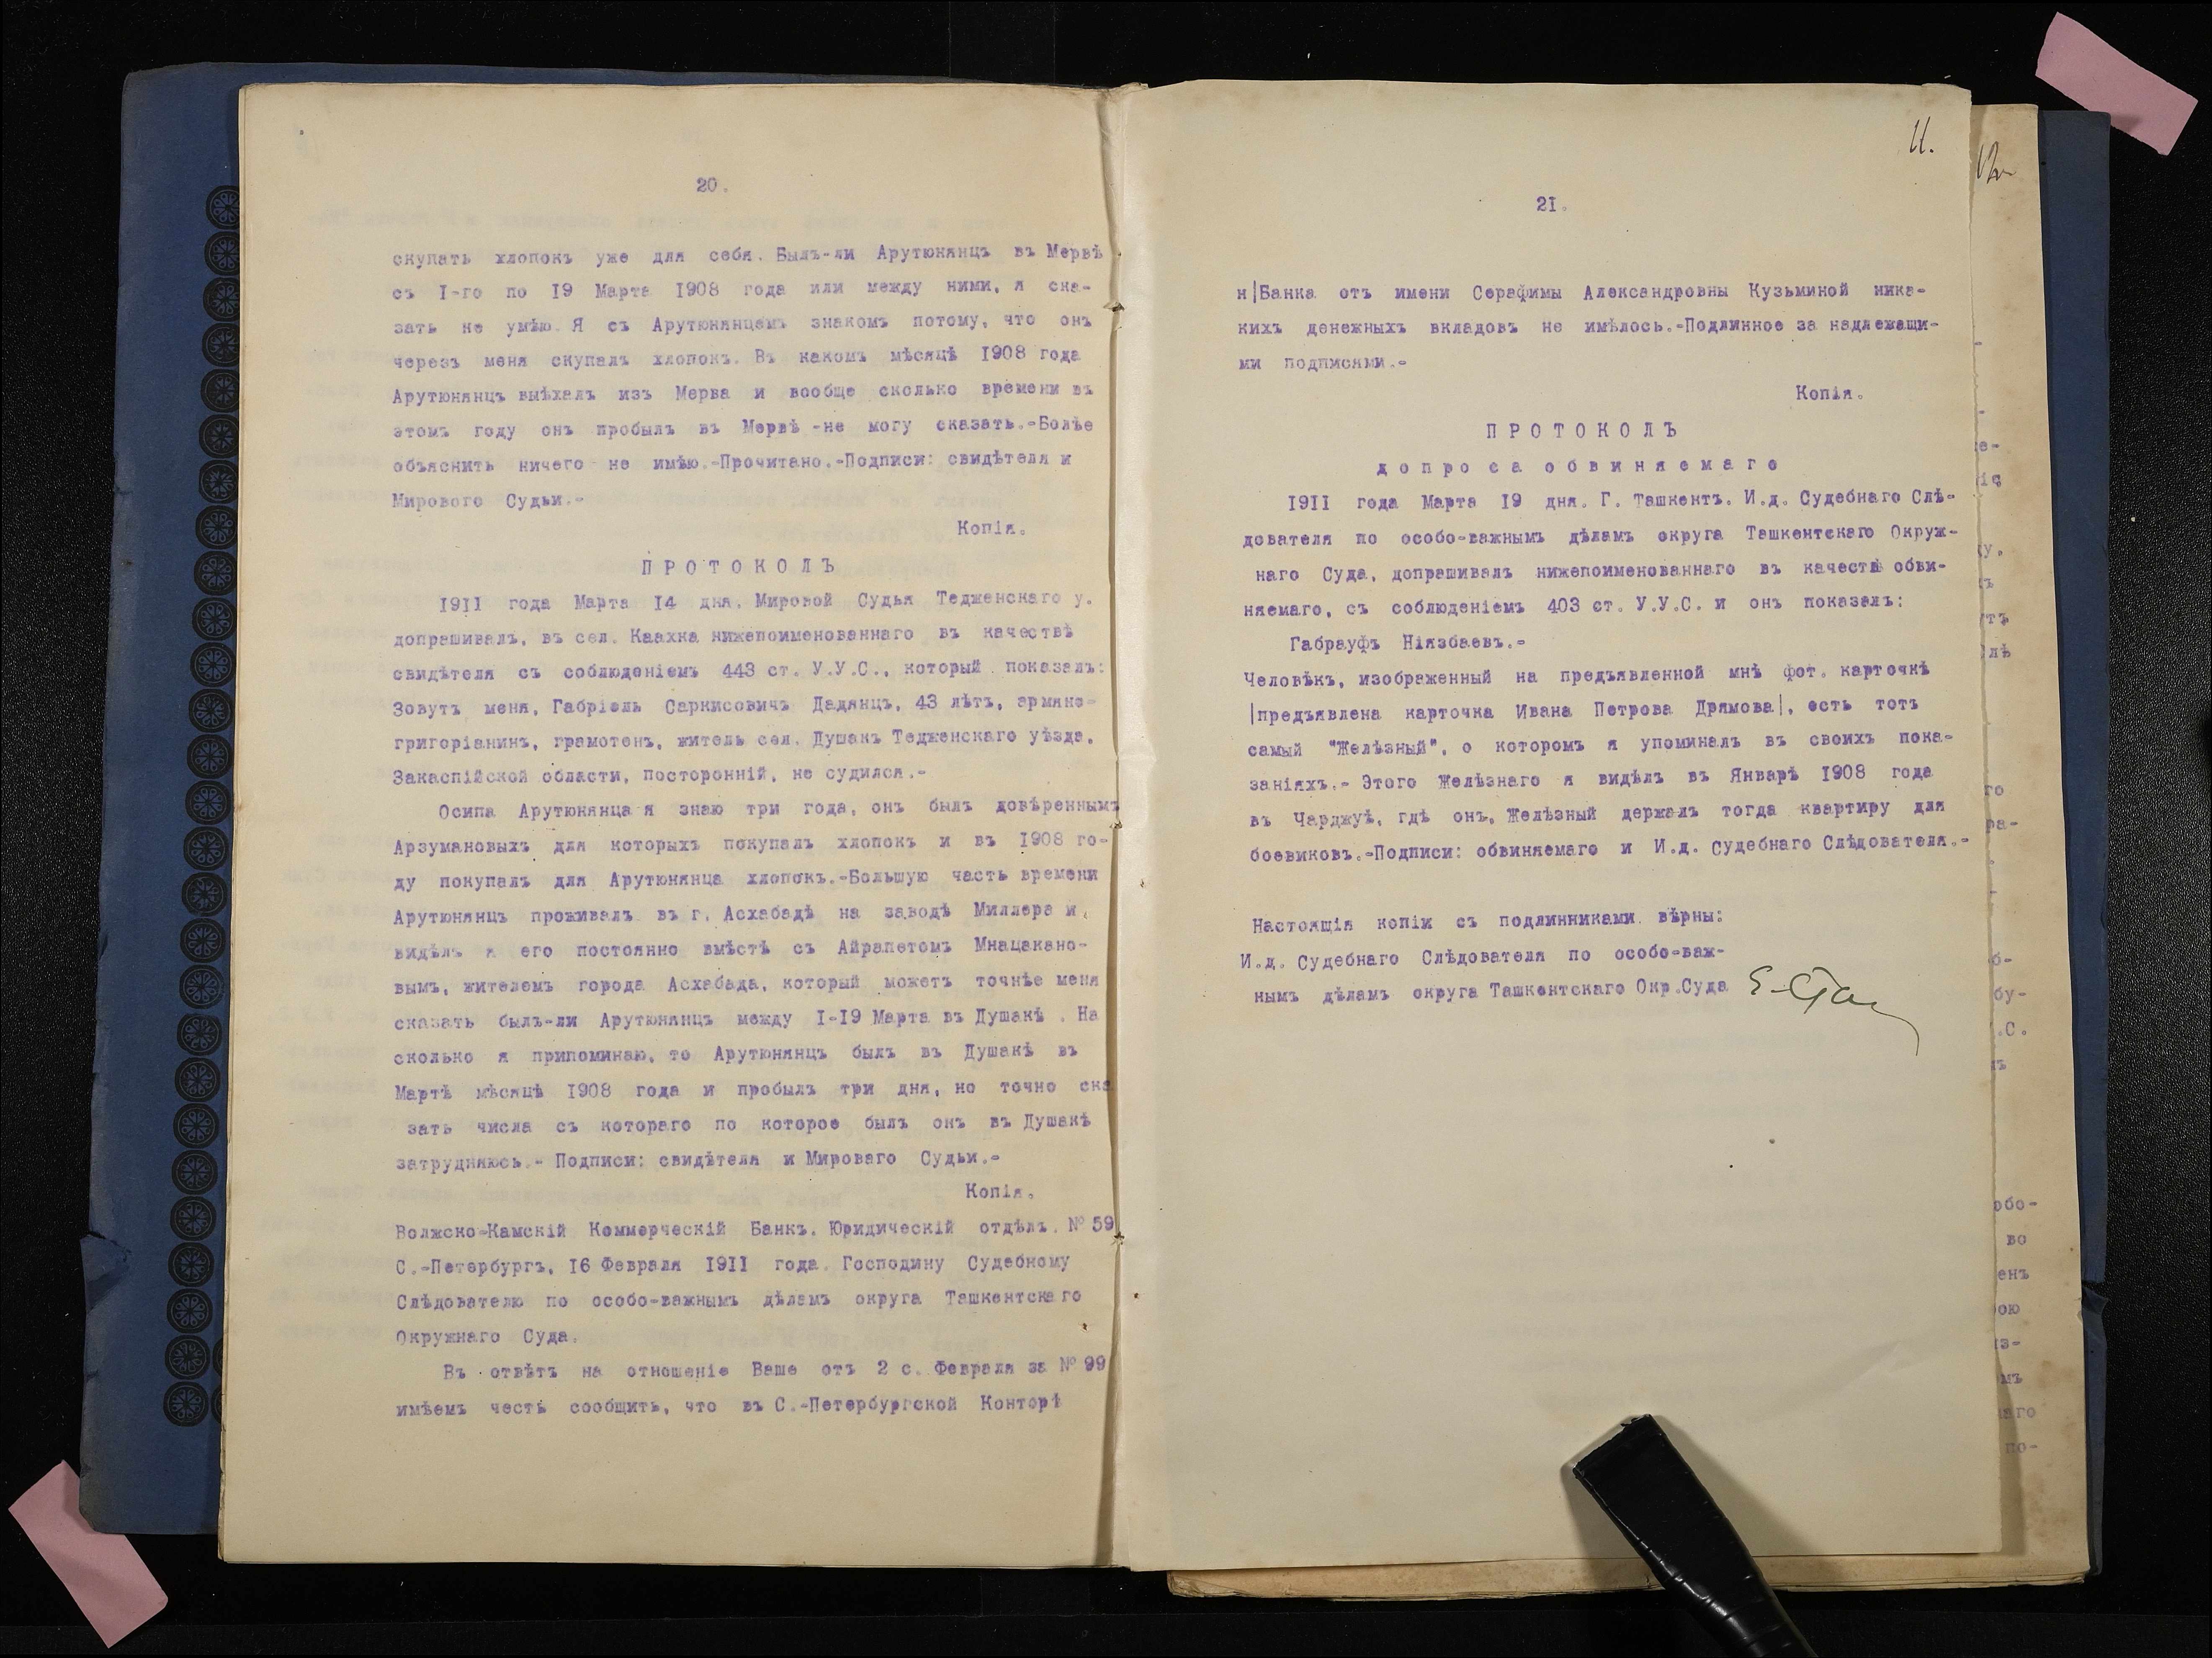 20.
скупать хлопокъ уже для себя. Былъ-ли Арутюнянцъ въ Мервѣ
съ I-го по I9 Марта I908 года или между ними, я ска-
зать не умѣю. Я съ Арутюнянцемъ знакомъ потому, что онъ
черезъ меня скупалъ хлопокъ. Въ какомъ мѣсяцѣ I908 года
Арутюнянцъ выѣхалъ изъ Мерва и вообще сколько времени въ
этомъ году онъ пробылъ въ Мервѣ -не могу сказать.-Болѣе
объяснить ничего не имѣю.-Прочитано.-Подписи: свидѣтеля и
Мирового Судьи.-
Копія.
ПРОТОКОЛЪ
I9II года Марта I4 дня. Мировой Судья Тедженскаго у.
допрашивалъ, въ сел. Каахка нижепоименованнаго въ качествѣ
свидѣтеля съ соблюденіемъ 443 ст. У.У.С., который показалъ:
Зовутъ меня, Габріель Саркисовичъ Дадянцъ, 43 лѣтъ, армяно-
григоріанинъ, грамотенъ, житель сел. Душакъ Тедженскаго уѣзда,
Закаспійской области, посторонній, не судился.-
Осипа Арутюнянца я знаю три года, онъ былъ довѣреннымъ
Арзумановыхъ для которыхъ покупалъ хлопокъ и въ I908 го-
ду покупалъ для Арутюнянца хлопокъ.-Большую часть времени
Арутюнянцъ проживалъ въ г. Асхабадѣ на заводѣ Миллера и,
видѣлъ я его постоянно вмѣстѣ съ Айрапетомъ Мнацакано-
вымъ, жителемъ города Асхабада, который можетъ точнѣе меня
сказать былъ-ли Арутюнянцъ между I-I9 Марта въ Душакѣ . На
сколько я припоминаю, то Арутюнянцъ былъ въ Душакѣ въ
Мартѣ мѣсяцѣ I908 года и пробылъ три дня, но точно ска
зать числа съ котораго по которое былъ онъ въ Душакѣ
затрудняюсь.- Подписи: свидѣтеля и Мироваго Судьи.-
Копія.
Волжско-Камскій Коммерческій Банкъ. Юридическій отдѣлъ. № 59
С.-Петербургъ, I6 Февраля I9II года. Господину Судебному
Слѣдователю по особо-важнымъ дѣламъ округа Ташкентскаго
Окружнаго Суда.
Въ отвѣтъ на отношеніе Ваше отъ 2 с. Февраля за № 99
имѣемъ честь сообщить, что въ С.-Петербургской Конторѣ
II.
2I.
н|Банка отъ имени Серафимы Александровны Кузьминой ника-
кихъ денежныхъ вкладовъ не имѣлось.-Подлинное за надлежащи-
ми подписями.-
Копія.
ПРОТОКОЛЪ
допроса обвиняемаго
I9II года Марта I9 дня. Г. Ташкентъ. И.д. Судебнаго Слѣ-
дователя по особо-важнымъ дѣламъ округа Ташкентскаго Окруж-
наго Суда, допрашивалъ нижепоименованнаго въ качествѣ обви-
няемаго, съ соблюденіемъ 403 ст. У.У.С. и онъ показалъ:
Габрауфъ Ніязбаевъ.-
Человѣкъ, изображенный на предъявленной мнѣ фот. карточкѣ
|предъявлена карточка Ивана Петрова Дрямова|, есть тотъ
самый "Желѣзный", о которомъ я упоминалъ въ своихъ пока-
заніяхъ.- Этого Желѣзнаго я видѣлъ въ Январѣ I908 года
въ Чарджуѣ, гдѣ онъ, Желѣзный держалъ тогда квартиру для
боевиковъ.-Подписи: обвиняемаго и И.д. Судебнаго Слѣдователя.-
Настоящія копіи съ подлинниками вѣрны:
И.д. Судебнаго Слѣдователя по особо-важ-
нымъ дѣламъ округа Ташкентскаго Окр.Суда